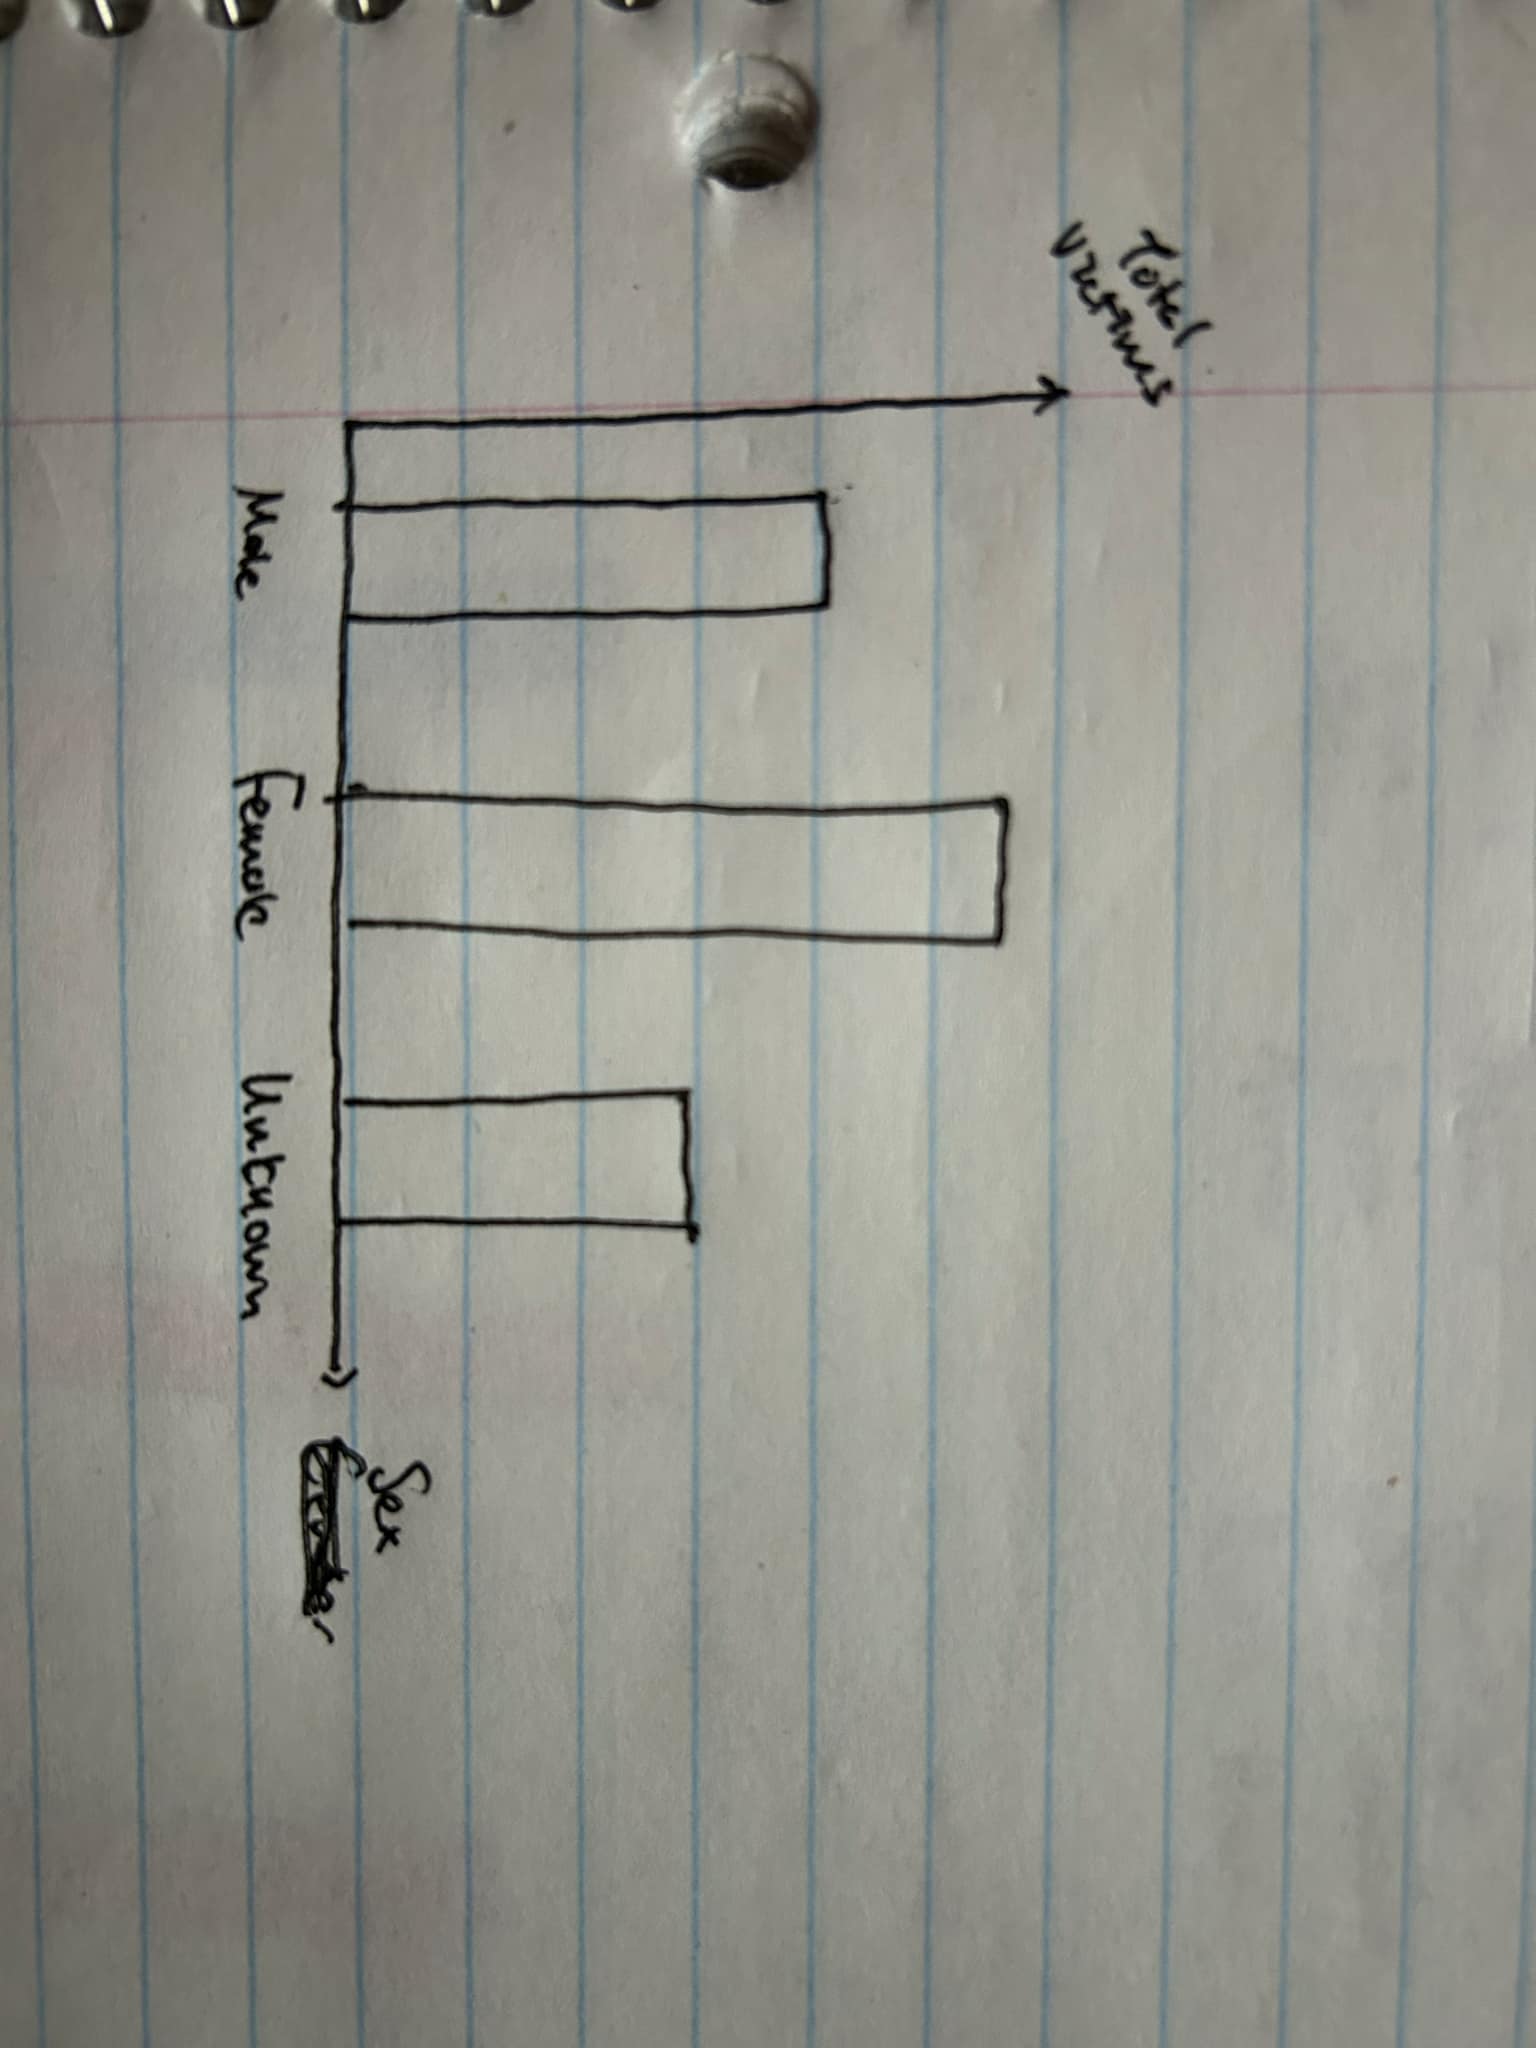 Total
victims
Male Female Unknown
Sex